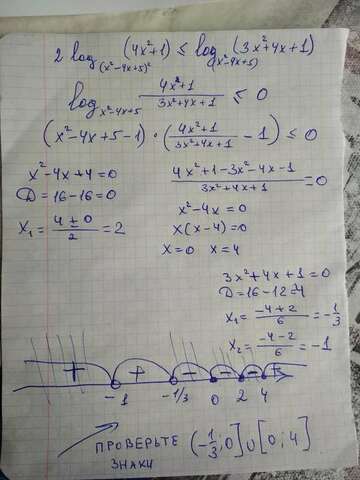 2 log_(x²-4x+5)² (4x²+1) ≤ log_(x²-4x+5) (3x²+4x+1)
log_x²-4x+5 (4x²+1)/(3x²+4x+1) ≤ 0
(x²-4x+5-1) · ((4x²+1)/(3x²+4x+1) - 1) ≤ 0
x²-4x+4=0
D=16-16=0
x₁ = (4±0)/2 = 2
(4x²+1-3x²-4x-1)/(3x²+4x+1) = 0
x²-4x=0
x(x-4)=0
x=0 x=4
3x²+4x+1=0
D=16-12=4
x₁ = (-4+2)/6 = -1/3
x₂ = (-4-2)/6 = -1
+ + - - - +
-1 -1/3 0 2 4
ПРОВЕРЬТЕ ЗНАКИ
(-1/3;0]∪[0;4]